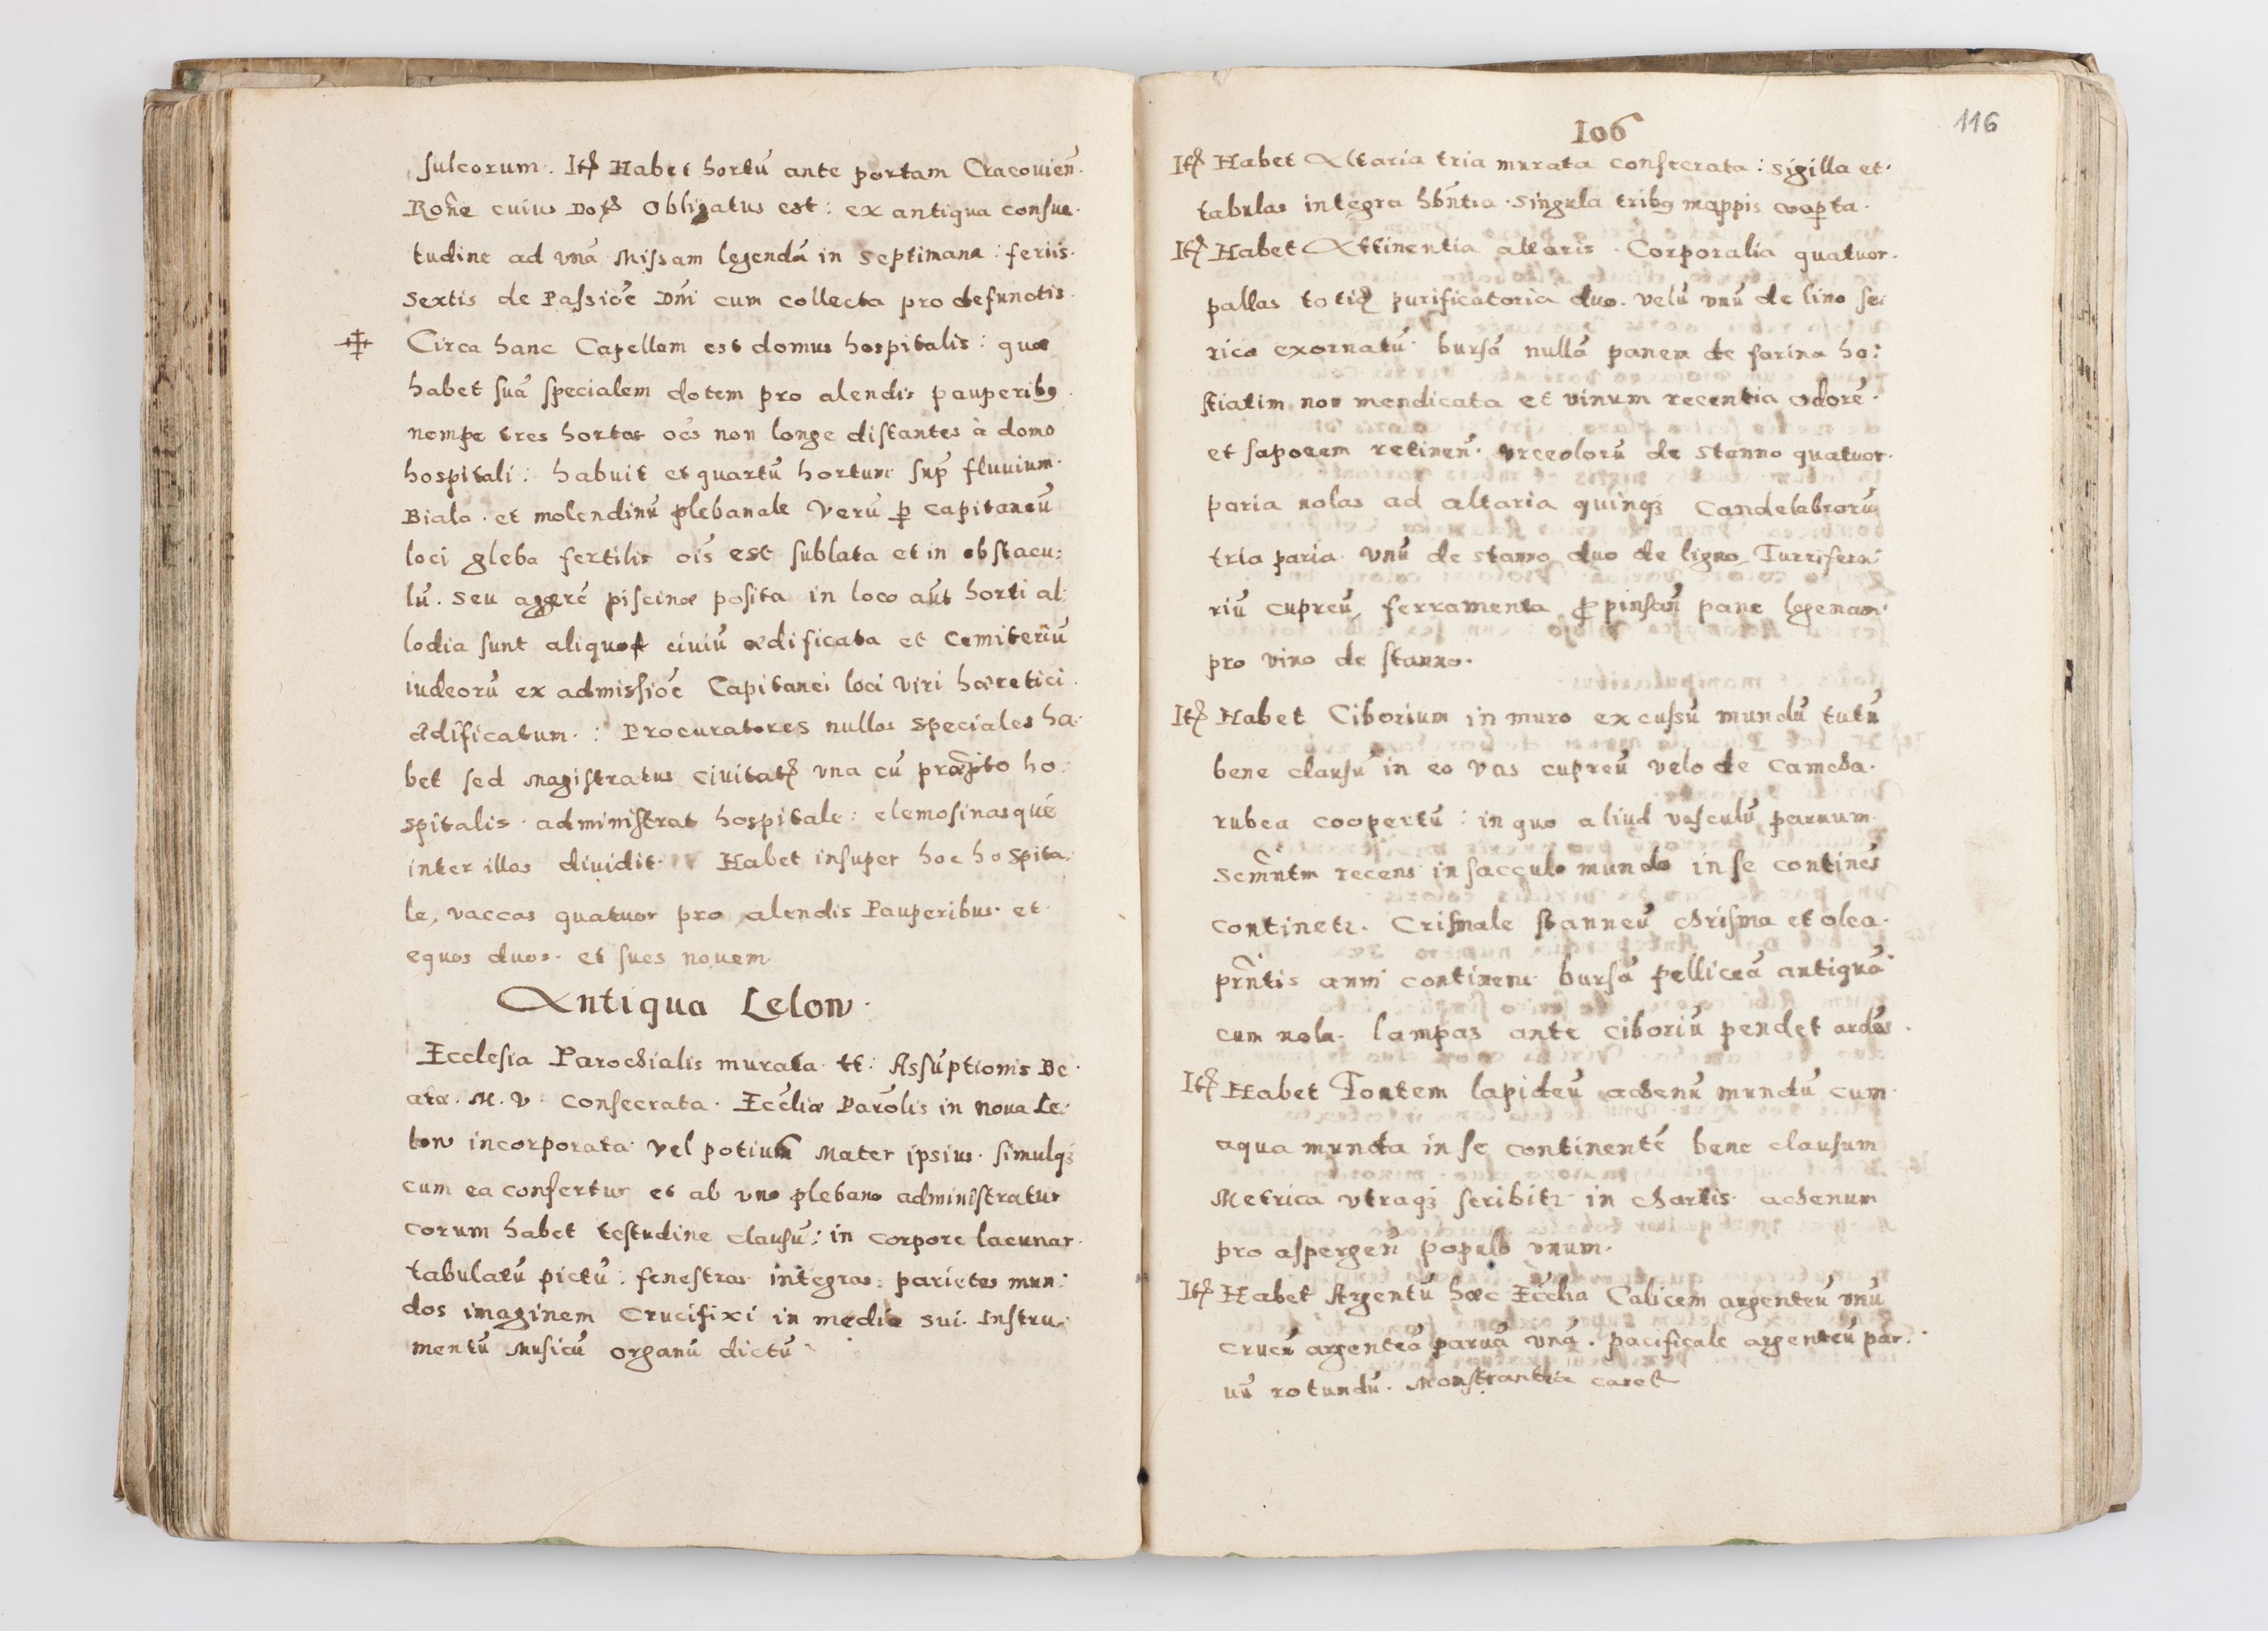 sulcorum. Itē Habet hortū ante portam Cracouień.
Roñe cuius Dotē Obligatus est: ex antiqua consue-
tudine ad vnā Missam legendā in Septimana: feriis.
Sextis de Passiōe Dñi cum collecta pro defunctis.
Circa hanc Capellam est domus hospitalis: quæ
habet suā specialem dotem pro alendis pauperibꝰ.
nempe tres hortos oēs non longe distantes à domo
hospitali: habuit et quartū hortum sup̄ fluuium.
Biala. et molendinū plebanale Verū ꝑ capitaneū
loci gleba fertilis oīs est sublata et in obstacu:
lū. seu aggerē piscinæ posita in loco aūt horti al:
lodia sunt aliquot ciuiū ædificata et Cemiteriū
iudeorū ex admissiōe Capitanei loci viri hæretici.
ædificatum.: Procuratores nullos speciales ha:
bet sed Magistratus Ciuitatꝭ vna cū præpto ho:
spitalis administrat hospitale: elemosinasqué
inter illos diuidit. Habet insuper hoc hospita:
le, vaccas quatuor pro alendis Pauperibus. et
equos duos. et sues nouem.
Antiqua Lelow.
Ecclesia Parochialis murata. tt: Assūptionis Be.
atæ. M. V. consecrata. Eccliæ Parolis in noua Le:
low incorporata vel potius Mater ipsius. simulqꝫ
cum ea confertur et ab vno plebano administratur
corum habet testudine clausū: in corpore lacunar.
tabulatū pictū: fenestras integras: parietes mun:
dos imaginem Crucifixi in media sui. Instru:
mentū Musicū organū dictū
106
116
Itē Habet Altaria tria murata consecrata: sigilla et.
tabulas integra hb̄ntia. singula tribꝰ mappis cooꝑta.
Itē Habet Attinentia altaris. Corporalia quatuor.
pallas totiđ purificatoria duo. velū vnū de lino se:
rico exornatū. bursā nullā panem de farina ho:
stiatim non mendicata et vinum recentia odorē.
et saporem retineń. vrceolorū de stanno quatuor.
paria nolas ad altaria quinqꝫ Candelabrorū
tria paria. vnū de stanno duo de ligno, Turrifera:
riū cupreū, ferramenta ꝓ pinsań pane lagenam.
pro vino de stanno.
Itē Habet Ciborium in muro excussū mundū tutū
bene clausū in eo vas cupreū velo de Camcha.
rubea coopertū: in quo aliud vasculū paruum.
Scm̄ntm recens in sacculo mundo in se continēs
continetr. Crismale stanneū chrisma et olea.
prn̄tis anni continens. bursā pelliceā antiquā
cum nola. lampas ante ciboriū pendet ardēs.
Itē Habet Fontem lapideū achenū mundū cum
aqua muncta in se continentē bene clausum
Metrica vtraqꝫ scribitr. in chartis. achenum
pro aspergeń populo vnum.
Itē Habet Argentū hæc Ecclia Calicem argenteū vnū
crucē argenteā paruā vnā. pacificale argenteū par:
uū rotundū. Monstrantia caret